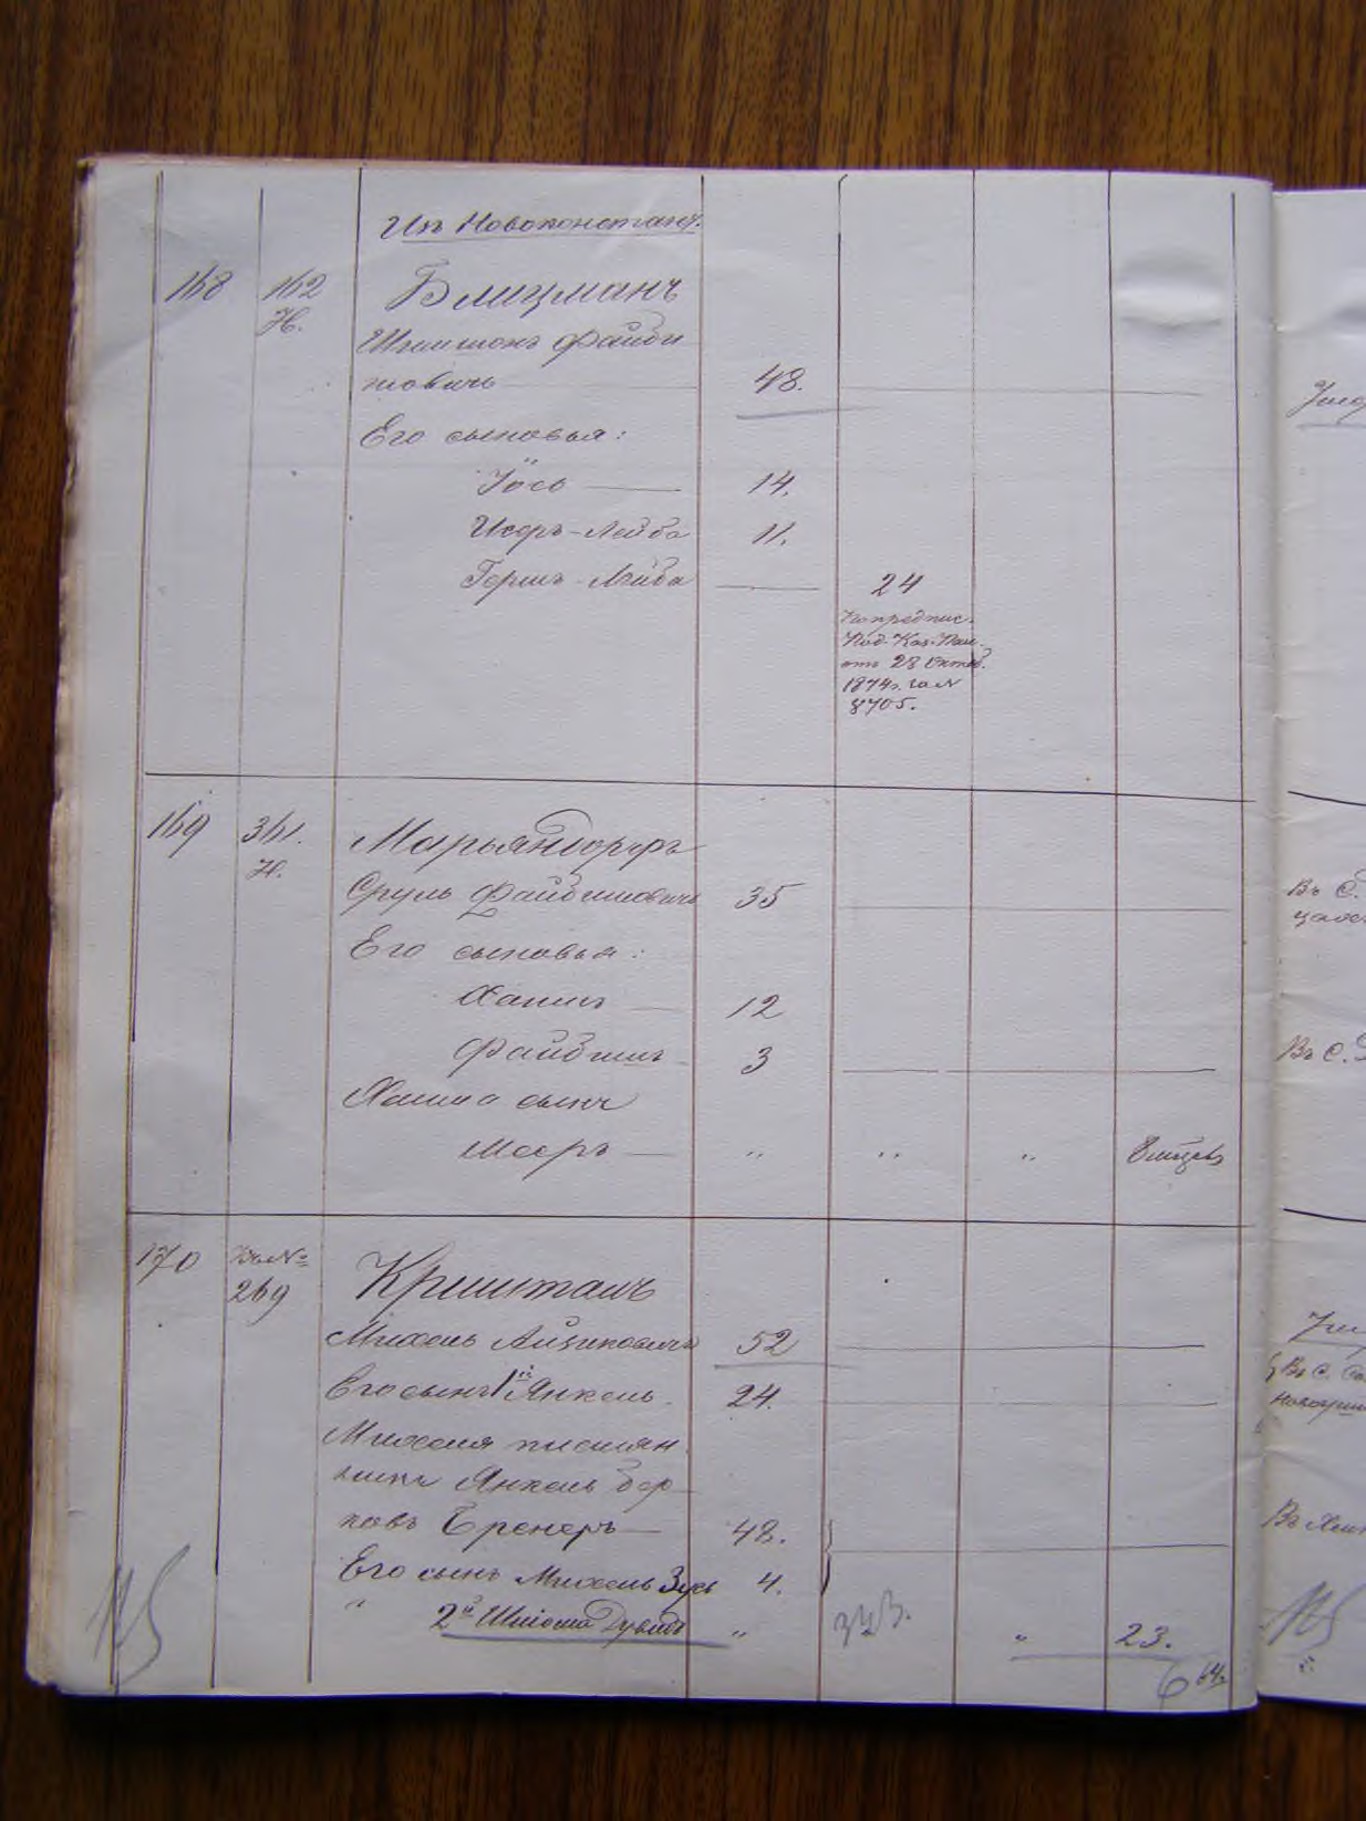 Изъ Новоконстант.
168 162 Блицманъ
Н.
Шлимонъ Файби
шовичъ 48.
Его сыновья:
Іось 14.
Исеръ-Лейба 11.
Гершъ-Лейба 24
по предпис.
Под. Каз. Пал.
отъ 28 Октяб.
1874 г. за №
8705.
169 361. Марьяндорфъ
Н.
Сруль Файбишовичъ 35
Его сыновья:
Хаимъ 12
Файбишъ 3
Хаима сынъ
Мееръ " " " 8 мѣсяц.
170 269 Кришталь
Михель Айзиковичъ 52
Его сынъ 1й Янкель 24.
Михеля племян
никъ Янкель Бер
ковъ Бренеръ 48.
Его сынъ Михель Зусь 4.
" 2й Шліома Дувидъ " " 23.
В. С.
Въ С.
115